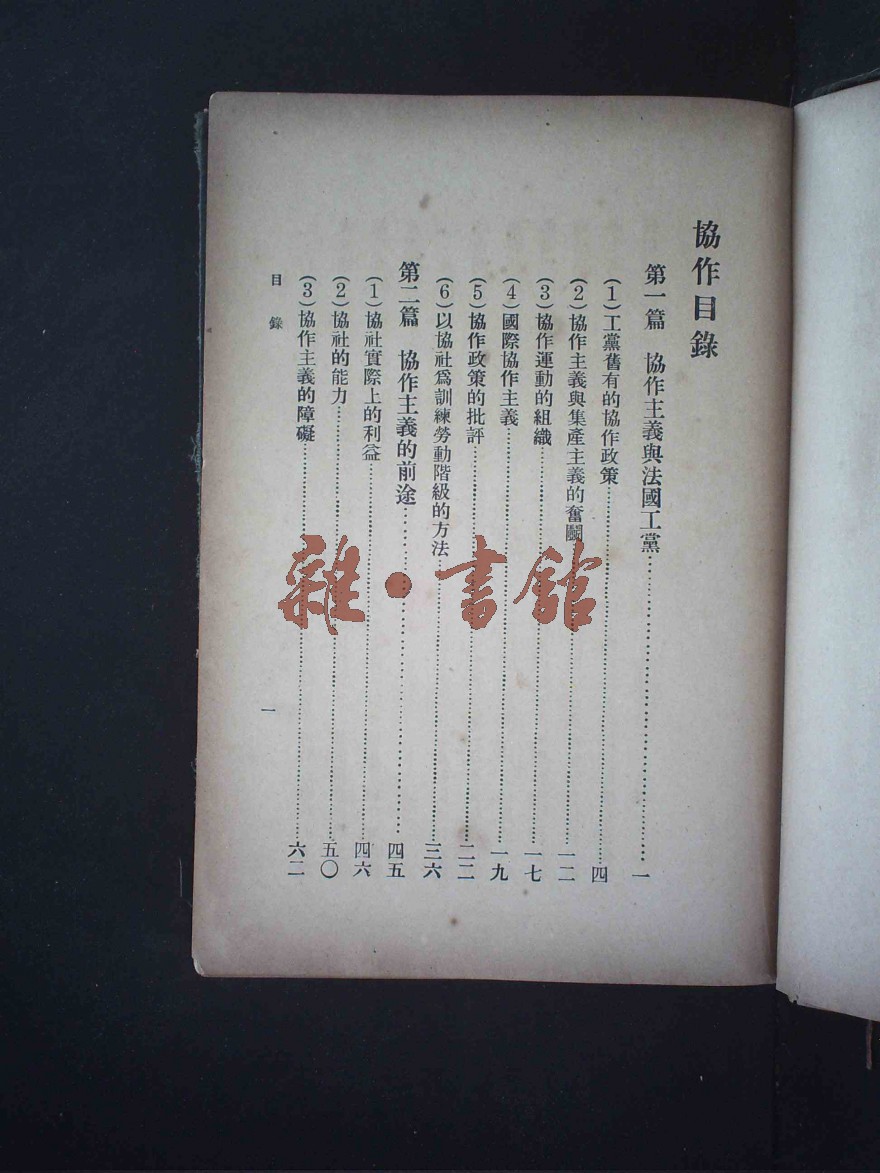 協作目錄
第一篇　協作主義與法國工黨……一
(1)工黨舊有的協作政策……四
(2)協作主義與集產主義的奮鬭……一二
(3)協作運動的組織……一七
(4)國際協作主義……一九
(5)協作政策的批評……二二
(6)以協社爲訓練勞動階級的方法……三六
第二篇　協作主義的前途……四五
(1)協社實際上的利益……四六
(2)協社的能力……五〇
(3)協作主義的障礙……六二
目錄
一
雜·書館